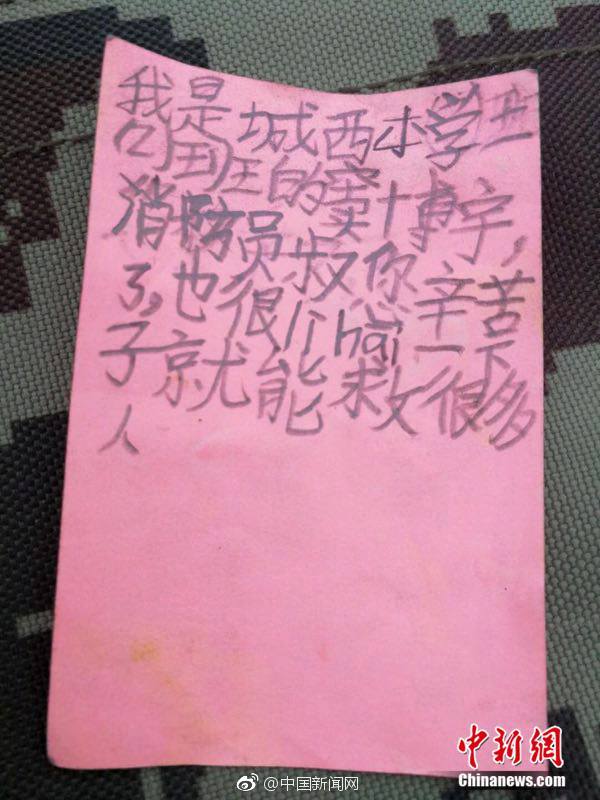 我是城西小学
班的窦博宇,
消防员叔你辛苦
了,也很lihai一下
子就能救很多
人
@中国新闻网
中新網
Chinanews.com